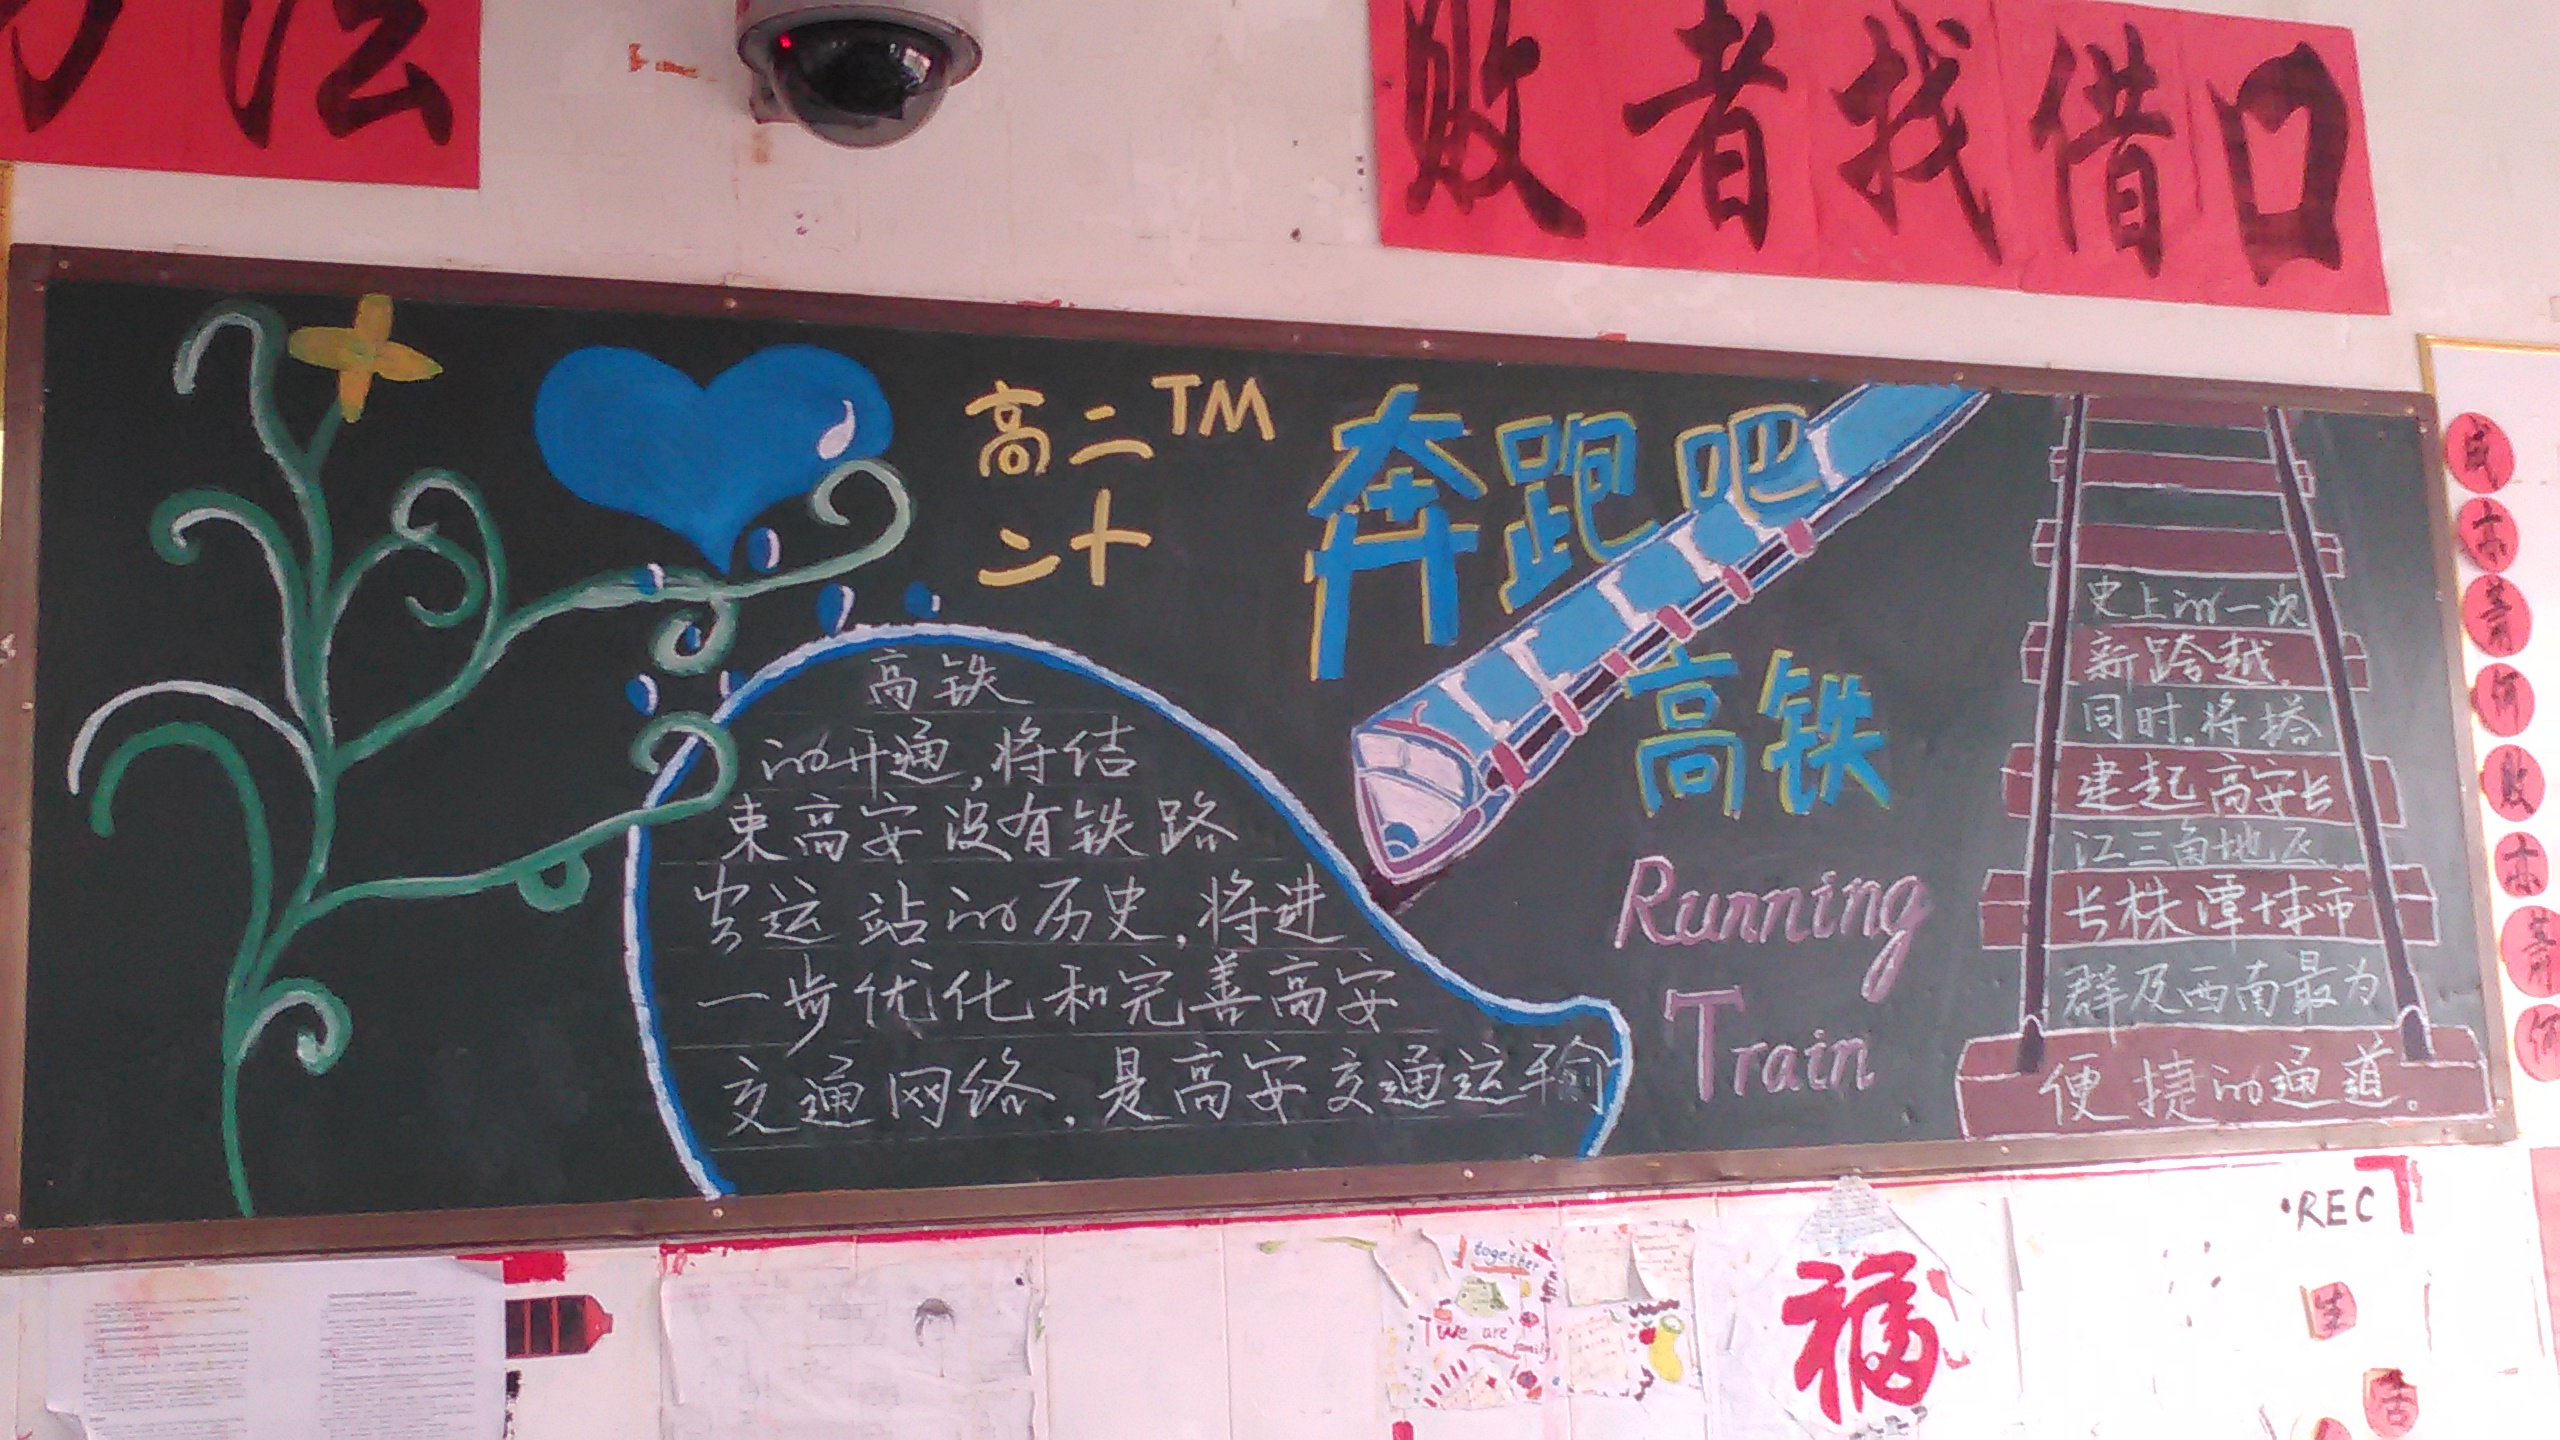 方法
败者找借口
高二TM
二十
奔跑吧
高铁
Running
Train
高铁
的开通,将结
束高安没有铁路
客运站的历史,将进
一步优化和完善高安
交通网络,是高安交通运输
史上的一次
新跨越,
同时,将搭
建起高安长
江三角地区、
长株潭城市
群及西南最为
便捷的通道。
成
本
若
何
败
本
若
何
together
we are
family
福
•REC
生
活